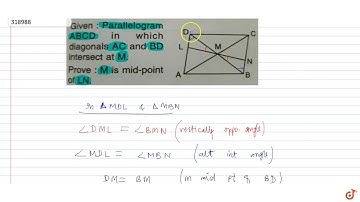 318988
Given : Parallelogram
ABCD in which
diagonals AC and BD
intersect at M.
Prove : M is mid-point
of LN.
D
C
L
M
N
A
B
In Δ MDL & Δ MBN
∠DML = ∠BMN (vertically oppo. angle)
∠MDL = ∠MBN (alt int angle)
DM = BM (M mid pt of BD)